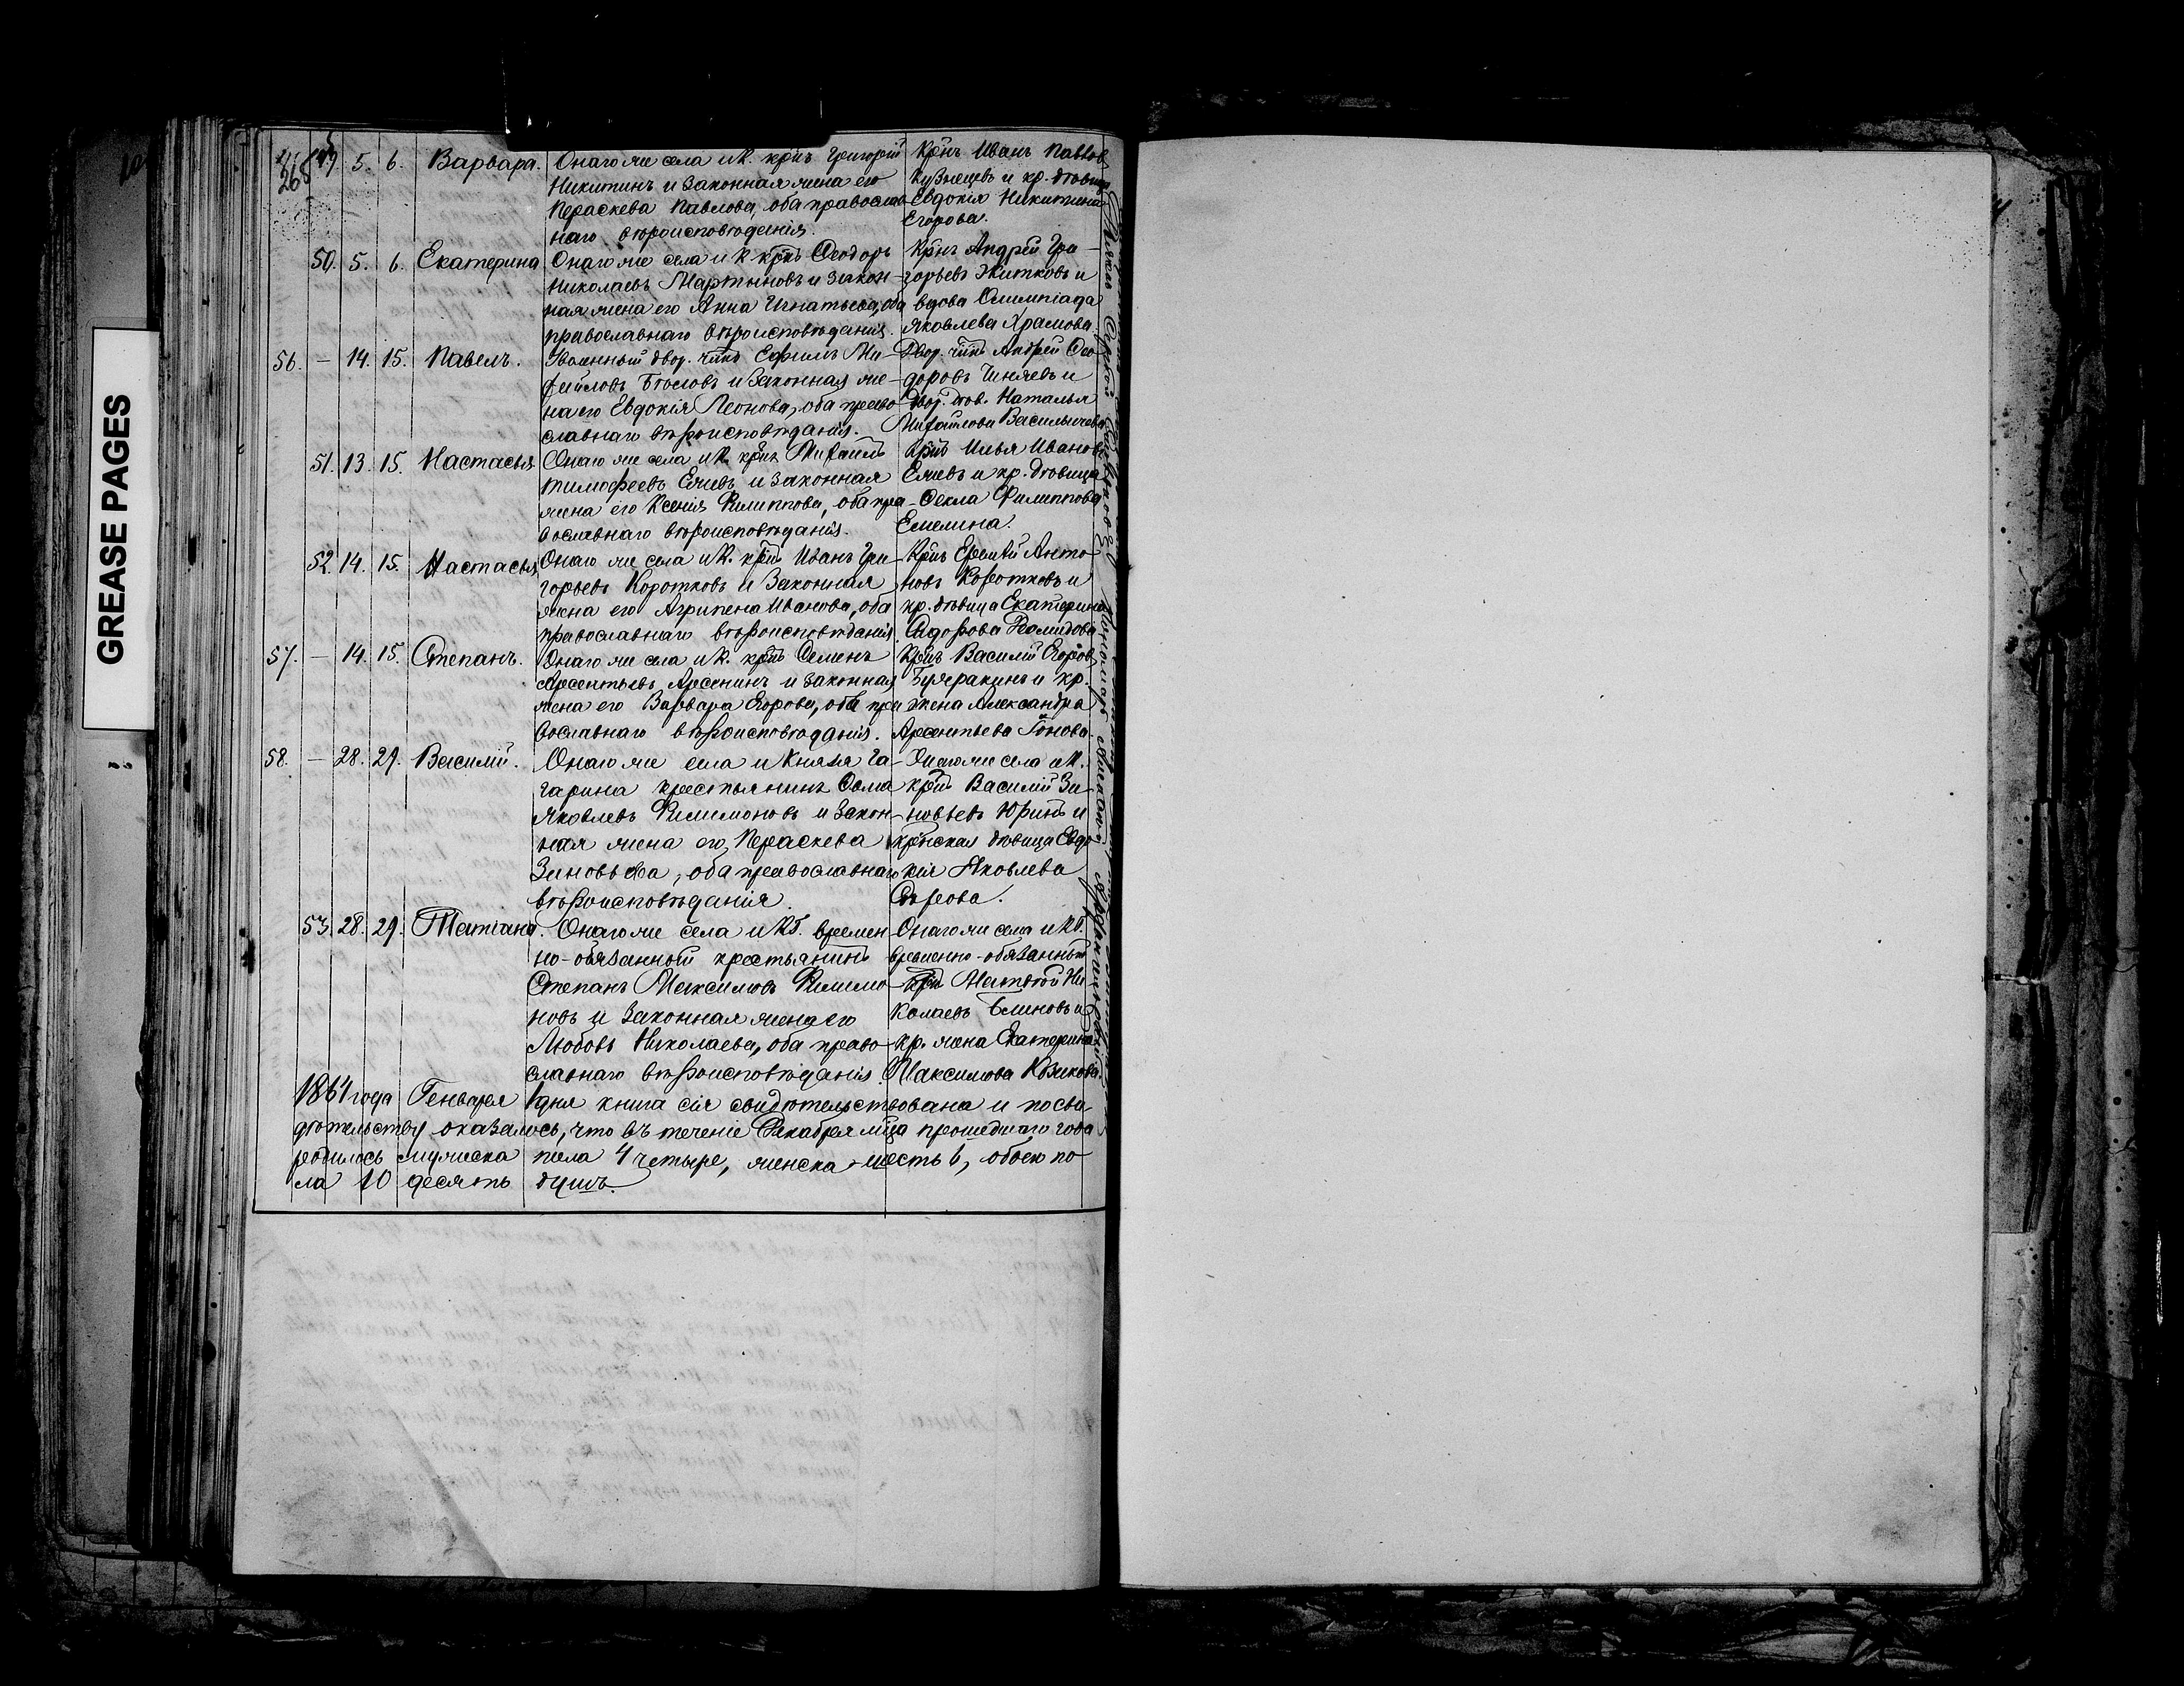 GREASE PAGES
268
49. 5. 6. Варвара. Онаго же села и К. кр̃нъ Григорій
Никитинъ и законная жена его
Параскева Павлова, оба православ-
наго вѣроисповѣданія.
Кр̃нъ Иванъ Павлов
Кузнецовъ и кр. дѣвица
Евдокія Никитина
Егорова.
50. 5. 6. Екатерина Онаго же села и К. кр̃нъ Ѳеодоръ
Николаевъ Мартыновъ и закон-
ная жена его Анна Игнатьева, оба
православнаго вѣроисповѣданія.
Кр̃нъ Андрей Гри-
горьевъ Житковъ и
вдова Олимпіада
Яковлева Храмова.
56. – 14. 15. Павелъ. двор. Ефимъ Ми-
хайловъ Бѣловъ и законная же-
на его Евдокія Леонова, оба право-
славнаго вѣроисповѣданія.
Двор. Андрей Ѳео-
доровъ и
двор. дѣв. Наталья
Михайлова Васильичева
51. 13. 15. Настасья Онаго же села и К. кр̃нъ Михаилъ
Тимофеевъ Ежовъ и законная
жена его Ксенія Филиппова, оба пра-
вославнаго вѣроисповѣданія.
Кр̃нъ Илья Ивановъ
Ежовъ и кр. дѣвица
Ѳекла Филиппова
Емелина.
52. 14. 15. Настасья Онаго же села и К. кр̃нъ Иванъ Гри-
горьевъ Коротковъ и законная
жена его Агрипена Иванова, оба
православнаго вѣроисповѣданія.
Кр̃нъ Еремѣй Анто-
новъ Коротковъ и
кр. дѣвица Екатерина
Сидорова
57. – 14. 15. Степанъ. Онаго же села и К. кр̃нъ Семенъ
Арсентьевъ Арсенинъ и законная
жена его Варвара Егорова, оба пра-
вославнаго вѣроисповѣданія.
Кр̃нъ Василій Егоров
и кр.
жена Александра
Арсентьева
58. – 28. 29. Василій. Онаго же села и Князя Га-
гарина крестьянинъ Ѳома
Яковлевъ Филимоновъ и закон-
ная жена его Параскева
Зиновьева, оба православнаго
вѣроисповѣданія.
Онаго же села и К.
кр̃нъ Василій Зи-
новьевъ Юринъ и
кр̃нская дѣвица Евдо-
кія Яковлева
53. 28. 29. Татіана. Онаго же села и КГ. времен-
но-обязанной крестьянинъ
Степанъ Максимовъ Филимо-
новъ и законная жена его
Любовь Николаева, оба право-
славнаго вѣроисповѣданія.
Онаго же села и КГ.
временно-обязанный
кр̃нъ Матвѣй Ни-
колаевъ Блиновъ и
кр. жена Екатерина
Максимова
1864 года Генваря 1 дня книга сія свидѣтельствована и по сви-
дѣтельству оказалось, что въ теченіе Декабря м̃ца прошедшаго года
родилось мужеска пола 4 четыре, женска – шесть 6, обоего по-
ла 10 десять душъ.